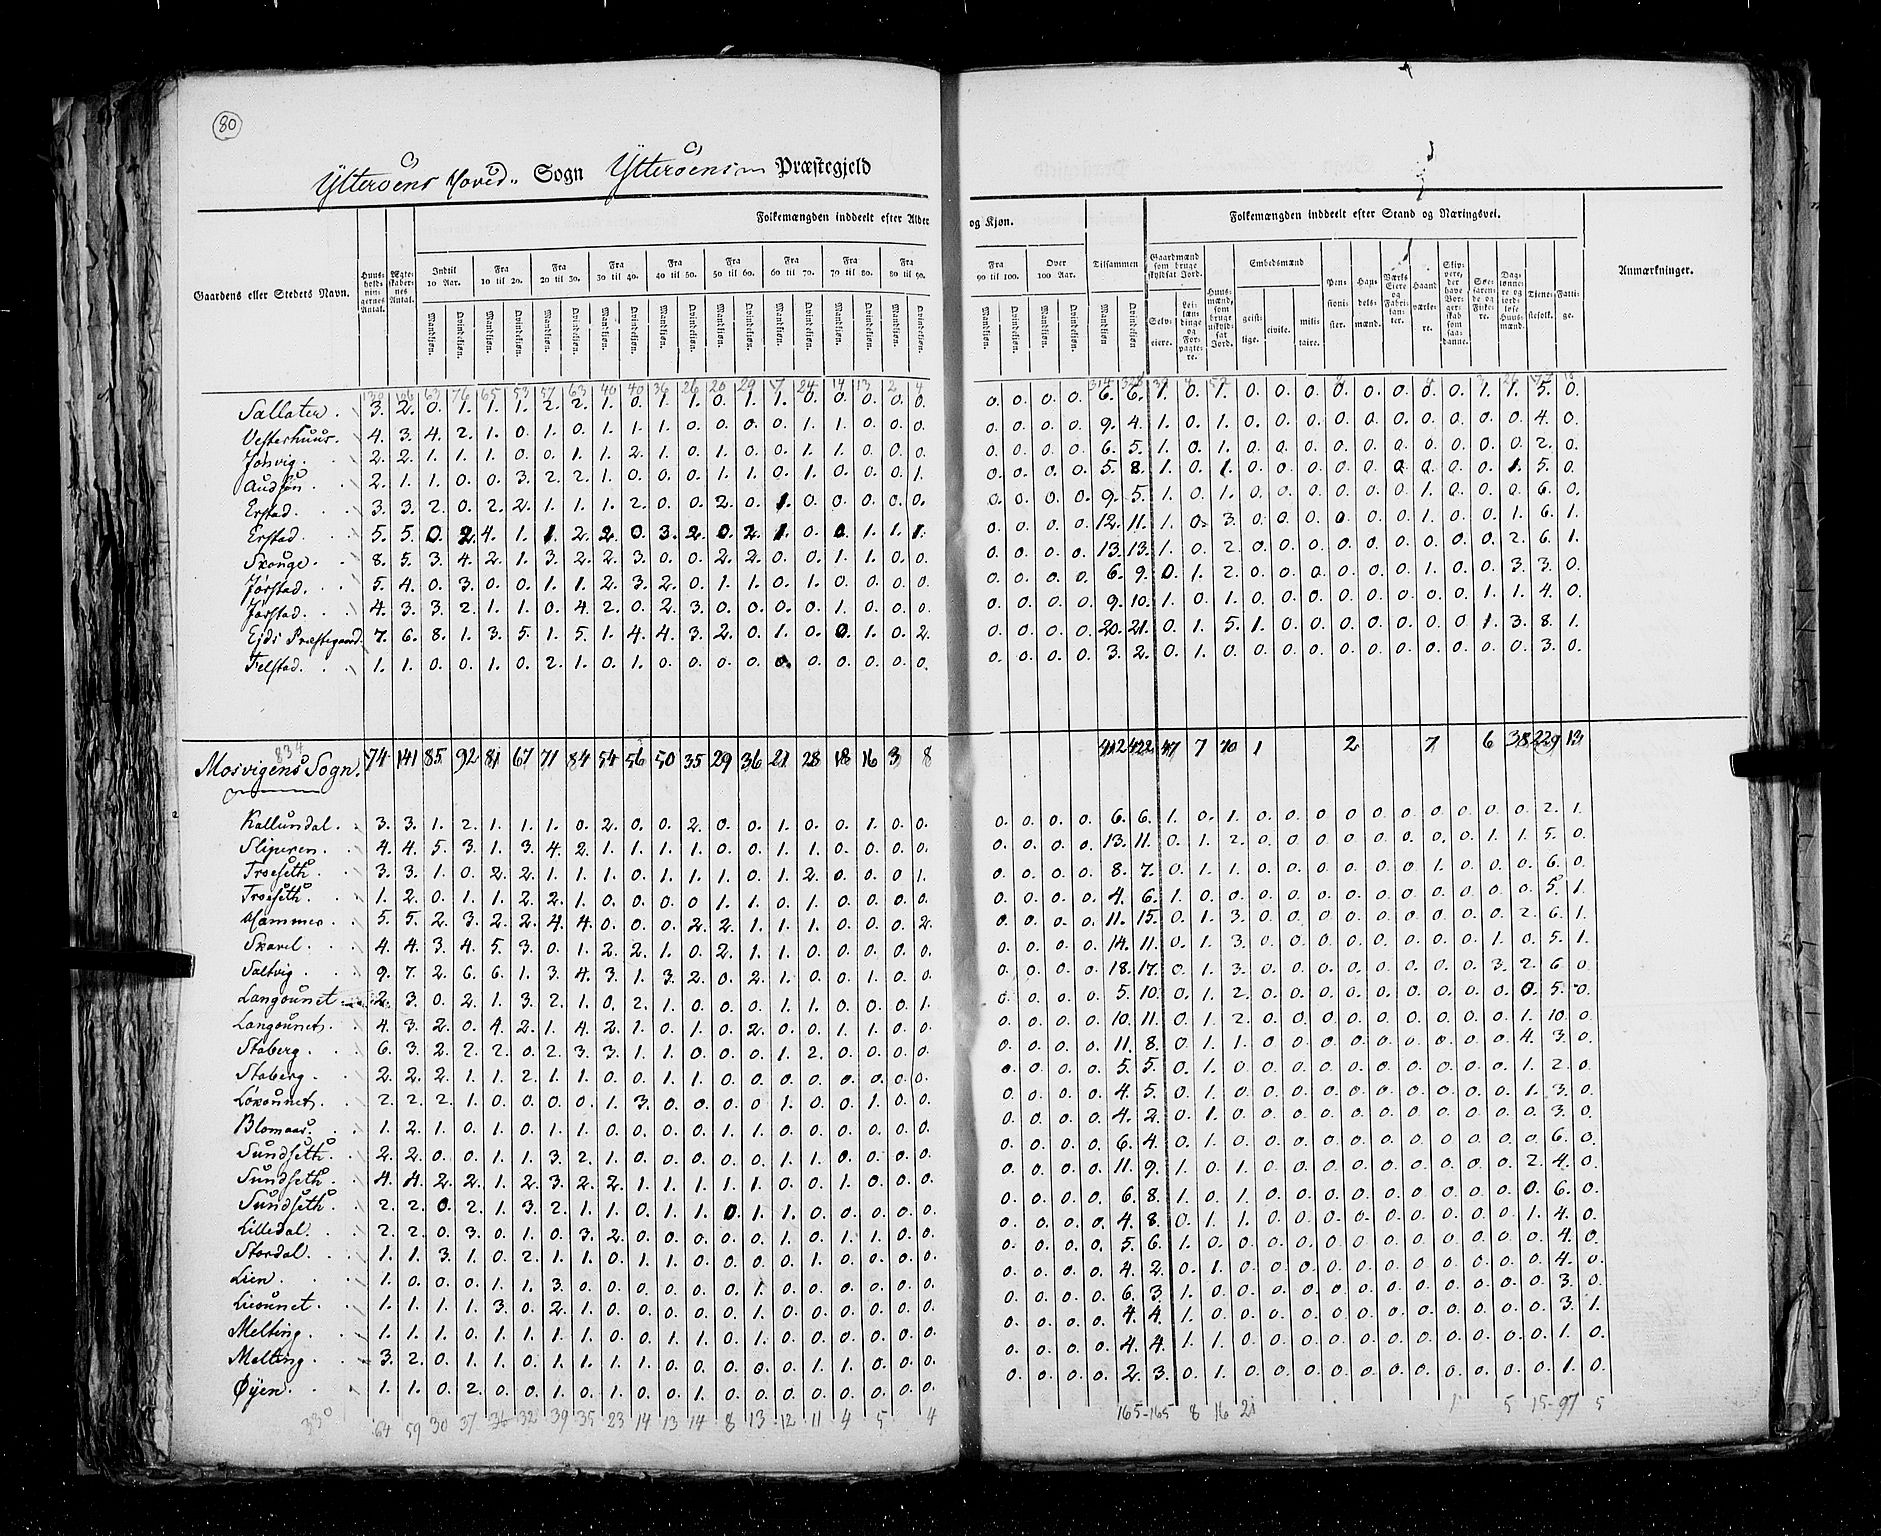 80
Ytterøens Hoved- Sogn Ytterøens Præstegjeld
Folkemængden inddeelt efter Alder og Kjøn. Folkemængden inddeelt efter Stand og Næringsvei.
Gaardens eller Stedets Navn. Huusholdningernes Antal. Ægteskabernes Antal. Indtil 10 Aar. Fra 10 til 20. Fra 20 til 30. Fra 30 til 40. Fra 40 til 50. Fra 50 til 60. Fra 60 til 70. Fra 70 til 80. Fra 80 til 90. Fra 90 til 100. Over 100 Aar. Tilsammen Gaardmænd som bruge skyldsat Jord. Huusmænd, som bruge uskyldsat Jord. Embedsmænd Pensionister. Handelsmænd. Værkseiere og Fabrikanter. Haandværkere. Skippere, der have Borgerskab som saadanne. Søefarende og Fiskere. Daglønnere og jordløse Huusmænd. Tienestefolk. Fattige. Anmærkninger.
Mandkjøn. Qvindekjøn. Selveiere. Leilændinge og Forpagtere. geistlige. civile. militaire.
Sallater. 3. 2. 0. 1. 1. 1. 2. 2. 1. 0. 1. 1. 0. 1. 1. 0. 0. 0. 0. 0. 0. 0. 0. 0. 6. 6. 1. 0. 1. 0. 0. 0. 0. 0. 0. 0. 0. 1. 1. 5. 0.
Vesterhuus. 4. 3. 4. 2. 1. 0. 1. 0. 1. 1. 1. 0. 0. 0. 0. 1. 1. 0. 0. 0. 0. 0. 0. 0. 9. 4. 1. 0. 1. 0. 0. 0. 0. 0. 0. 0. 0. 0. 0. 4. 0.
Jønvig. 2. 2. 1. 1. 1. 0. 0. 1. 1. 2. 1. 0. 1. 0. 0. 1. 1. 0. 0. 0. 0. 0. 0. 0. 6. 5. 1. 0. 1. 0. 0. 0. 0. 0. 0. 0. 0. 0. 0. 2. 0.
2. 1. 1. 0. 0. 3. 2. 2. 1. 0. 0. 0. 1. 1. 0. 1. 0. 0. 0. 1. 0. 0. 0. 0. 5. 8. 1. 0. 1. 0. 0. 0. 0. 0. 0. 0. 0. 0. 1. 5. 0.
Erstad. 3. 3. 2. 0. 2. 2. 1. 1. 1. 2. 0. 0. 2. 0. 1. 0. 0. 0. 0. 0. 0. 0. 0. 0. 9. 5. 1. 0. 1. 0. 0. 0. 0. 0. 0. 1. 0. 0. 0. 6. 0.
Erstad. 5. 5. 0. 2. 4. 1. 1. 2. 2. 0. 3. 2. 0. 2. 1. 0. 0. 1. 1. 1. 0. 0. 0. 0. 12. 11. 1. 0. 3. 0. 0. 0. 0. 0. 0. 1. 0. 0. 1. 6. 1.
Skouge. 8. 5. 3. 4. 2. 1. 3. 2. 2. 3. 0. 0. 2. 2. 0. 0. 1. 1. 0. 0. 0. 0. 0. 0. 13. 13. 1. 0. 2. 0. 0. 0. 0. 0. 0. 0. 0. 0. 2. 6. 1.
Jørstad. 5. 4. 0. 3. 0. 0. 1. 1. 2. 3. 2. 0. 1. 1. 0. 1. 0. 0. 0. 0. 0. 0. 0. 0. 6. 9. 0. 1. 2. 0. 0. 0. 0. 0. 0. 1. 0. 0. 3. 3. 0.
Jørstad. 4. 3. 3. 2. 1. 1. 0. 4. 2. 0. 2. 3. 0. 0. 0. 0. 1. 0. 0. 0. 0. 0. 0. 0. 9. 10. 1. 0. 1. 0. 0. 0. 0. 0. 0. 0. 0. 1. 1. 4. 0.
Ejds Præstegaard. 7. 6. 8. 1. 3. 5. 1. 5. 1. 4. 4. 3. 2. 0. 1. 0. 0. 1. 0. 2. 0. 0. 0. 0. 20. 21. 0. 1. 5. 1. 0. 0. 0. 0. 0. 0. 0. 1. 3. 8. 1.
Felstad. 1. 1. 0. 0. 1. 0. 2. 1. 0. 1. 0. 0. 0. 0. 0. 0. 0. 0. 0. 0. 0. 0. 0. 0. 3. 2. 0. 1. 0. 0. 0. 0. 0. 0. 0. 0. 0. 0. 0. 3. 0.
834
Mosvigens Sogn. 74 141 85 92 81 67 71 84 54 56 50 35 29 36 21 28 18 16 3 8 412 422 47 7 70 1 2 7 6 38 229 13
Kallundal. 3. 3. 1. 2. 1. 1. 1. 0. 2. 0. 0. 2. 0. 0. 1. 0. 0. 1. 0. 0. 0. 0. 0. 0. 6. 6. 1. 0. 1. 0. 0. 0. 0. 0. 0. 0. 0. 0. 0. 2. 1.
Slipuren. 4. 4. 5. 3. 1. 3. 4. 2. 1. 1. 1. 1. 0. 0. 1. 1. 0. 0. 0. 0. 0. 0. 0. 0. 13. 11. 0. 1. 2. 0. 0. 0. 0. 0. 0. 0. 0. 1. 1. 5. 0.
Troeseth. 3. 3. 1. 0. 2. 2. 1. 1. 1. 0. 1. 1. 1. 0. 1. 2. 0. 0. 0. 1. 0. 0. 0. 0. 8. 7. 0. 1. 1. 0. 0. 0. 0. 0. 0. 1. 0. 0. 0. 6. 0.
Troeseth. 1. 2. 0. 1. 1. 2. 2. 1. 0. 0. 0. 0. 1. 1. 0. 1. 0. 0. 0. 0. 0. 0. 0. 0. 4. 6. 1. 0. 0. 0. 0. 0. 0. 0. 0. 0. 0. 0. 0. 5. 1.
Hammer. 5. 5. 2. 3. 2. 2. 4. 4. 0. 0. 0. 2. 2. 1. 1. 1. 0. 0. 0. 2. 0. 0. 0. 0. 11. 15. 0. 1. 3. 0. 0. 0. 0. 0. 0. 0. 0. 0. 2. 6. 1.
Skavel. 4. 4. 3. 4. 5. 3. 0. 1. 2. 2. 1. 0. 2. 1. 1. 0. 0. 0. 0. 0. 0. 0. 0. 0. 14. 11. 0. 1. 3. 0. 0. 0. 0. 0. 0. 0. 0. 1. 0. 5. 1.
Saltvig. 9. 7. 2. 6. 6. 1. 3. 4. 3. 1. 3. 2. 0. 2. 1. 0. 0. 1. 0. 0. 0. 0. 0. 0. 18. 17. 0. 1. 3. 0. 0. 0. 0. 0. 0. 0. 0. 3. 2. 6 0.
Langounet 2. 3. 0. 2. 1. 3. 2. 1. 0. 2. 1. 0. 0. 0. 1. 1. 0. 0. 0. 1. 0. 0. 0. 0. 5. 10. 0. 1. 2. 0. 0. 0. 0. 0. 0. 0. 0. 0. 0. 5. 0.
Langounet. 4. 3. 2. 0. 4. 2. 1. 4. 2. 1. 0. 1. 0. 2. 0. 0. 1. 1. 0. 0. 0. 0. 0. 0. 10. 11. 0. 1. 2. 0. 0. 0. 0. 0. 0. 0. 0. 0. 1. 10. 0.
Staberg. 6. 3. 2. 2. 2. 0. 2. 3. 3. 1. 1. 0. 0. 0. 1. 2. 0. 0. 0. 0. 0. 0. 0. 0. 11. 8. 0. 1. 1. 0. 0. 0. 0. 0. 0. 0. 0. 0. 4. 3. 0.
Staberg. 2. 2. 2. 1. 1. 2. 1. 1. 0. 0. 1. 1. 0. 0. 0. 0. 0. 0. 0. 0. 0. 0. 0. 0. 5. 5. 0. 1. 0. 0. 0. 0. 0. 0. 0. 0. 0. 0. 1. 2. 0.
2. 2. 2. 1. 0. 0. 0. 0. 1. 3. 0. 0. 0. 0. 1. 0. 0. 1. 0. 0. 0. 0. 0. 0. 4. 5. 0. 1. 0. 0. 0. 0. 0. 0. 0. 0. 0. 0. 1. 3. 0.
Blomaas. 1. 2. 1. 0. 1. 0. 1. 1. 0. 0. 0. 0. 1. 1. 0. 0. 0. 0. 0. 0. 0. 0. 0. 0. 4. 2. 0. 1. 0. 0. 0. 0. 0. 0. 0. 0. 0. 0. 0. 3. 0.
Sundseth. 2. 2. 0. 0. 1. 1. 3. 2. 1. 0. 0. 0. 0. 0. 1. 1. 0. 0. 0. 0. 0. 0. 0. 0. 6. 4. 0. 1. 0. 0. 0. 0. 0. 0. 0. 0. 0. 0. 0. 6. 0.
Sundseth. 4. 4. 2. 2. 1. 2. 3. 2. 2. 1. 1. 1. 1. 1. 0. 0. 1. 0. 0. 0. 0. 0. 0. 0. 11. 9. 1. 0. 1. 0. 0. 0. 0. 0. 0. 0. 0. 0. 2. 4. 0.
Sundseth. 2. 2. 0. 2. 1. 3. 2. 1. 1. 0. 1. 1. 0. 1. 1. 0. 0. 0. 0. 0. 0. 0. 0. 0. 6. 8. 1. 0. 1. 0. 0. 0. 0. 0. 0. 0. 0. 0. 0. 6. 0.
Lilledal. 2. 2. 0. 3. 0. 1. 0. 3. 2. 0. 0. 0. 0. 0. 1. 0. 1. 1. 0. 0. 0. 0. 0. 0. 4. 8. 0. 1. 1. 0. 0. 0. 0. 0. 0. 0. 0. 0. 1. 4. 0.
Stordal. 1. 1. 3. 1. 0. 2. 1. 1. 0. 1. 1. 0. 0. 0. 0. 1. 0. 0. 0. 0. 0. 0. 0. 0. 5. 6. 1. 0. 0. 0. 0. 0. 0. 0. 0. 0. 0. 0. 0. 4. 0.
Lien. 1. 0. 0. 0. 1. 1. 3. 0. 0. 0. 0. 0. 0. 1. 0. 0. 0. 0. 0. 0. 0. 0. 0. 0. 4. 2. 0. 1. 0. 0. 0. 0. 0. 0. 0. 0. 0. 0. 0. 4. 0.
Lieounet. 1. 1. 1. 1. 3. 0. 2. 1. 0. 0. 0. 0. 0. 1. 0. 0. 0. 0. 0. 0. 0. 0. 0. 0. 6. 3. 1. 0. 0. 0. 0. 0. 0. 0. 0. 0. 0. 0. 0. 3. 0.
Melting. 1. 1. 1. 0. 1. 1. 1. 1. 0. 0. 1. 1. 0. 1. 0. 0. 0. 0. 0. 0. 0. 0. 0. 0. 4. 4. 1. 0. 0. 0. 0. 0. 0. 0. 0. 0. 0. 0. 0. 3. 1.
Melting. 3. 2. 0. 1. 1. 0. 1. 1. 1. 1. 0. 0. 0. 0. 0. 1. 1. 0. 0. 0. 0. 0. 0. 0. 4. 4. 1. 1. 0. 0. 0. 0. 0. 0. 0. 0. 0. 0. 0. 1. 0.
Øyen. 1. 1. 0. 2. 0. 0. 1. 0. 1. 0. 0. 1. 0. 0. 0. 0. 0. 0. 0. 0. 0. 0. 0. 0. 2. 3. 0. 1. 0. 0. 0. 0. 0. 0. 0. 0. 0. 0. 0. 1. 0.
330 64 59 30 37 36 32 39 35 23 14 13 14 8 13 12 11 4 5 4 165 165 8 16 21 1 5 15 97 5